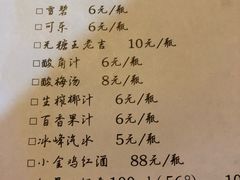 □雪碧 6元/瓶
□可乐 6元/瓶
□无糖王老吉 10元/瓶
□酸角汁 6元/瓶
□酸梅汤 8元/瓶
□生榨椰汁 6元/瓶
□百香果汁 6元/瓶
□冰峰汽水 5元/瓶
□小金鸡红酒 88元/瓶